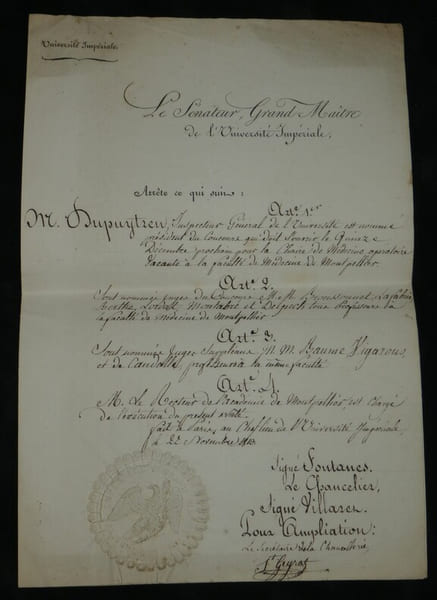 Université Impériale.
Le Sénateur, Grand-Maître
de l'Université Impériale,
Arrête ce qui suit:
Art. 1er
M. Dupuytren, Inspecteur Général de l'Université est nommé
président du Concours qui doit s'ouvrir le Quinze
Décembre prochain pour la Chaire de Médecine opératoire
vacante à la faculté de Médecine de Montpellier.
Art. 2.
Sont nommés Juges du Concours M.M. Broussonnet, Lafabrie
Berthe, Lordat, Montabré et Delpech tous Professeurs de
la faculté de médecine de Montpellier
Art. 3.
Sont nommés Juges Suppléants M.M. Baume, Vigarous,
et de Candolle, professeurs à la même faculté
Art. 4.
M. Le Recteur de l'académie de Montpellier, est chargé
de l'exécution du présent arrêté
fait à Paris, au Chef lieu de l'Université Impériale,
le 22 Novembre
Signé Fontanes.
Le Chancelier,
Signé Villaret.
Pour Ampliation:
Le Secrétaire de la Chancellerie